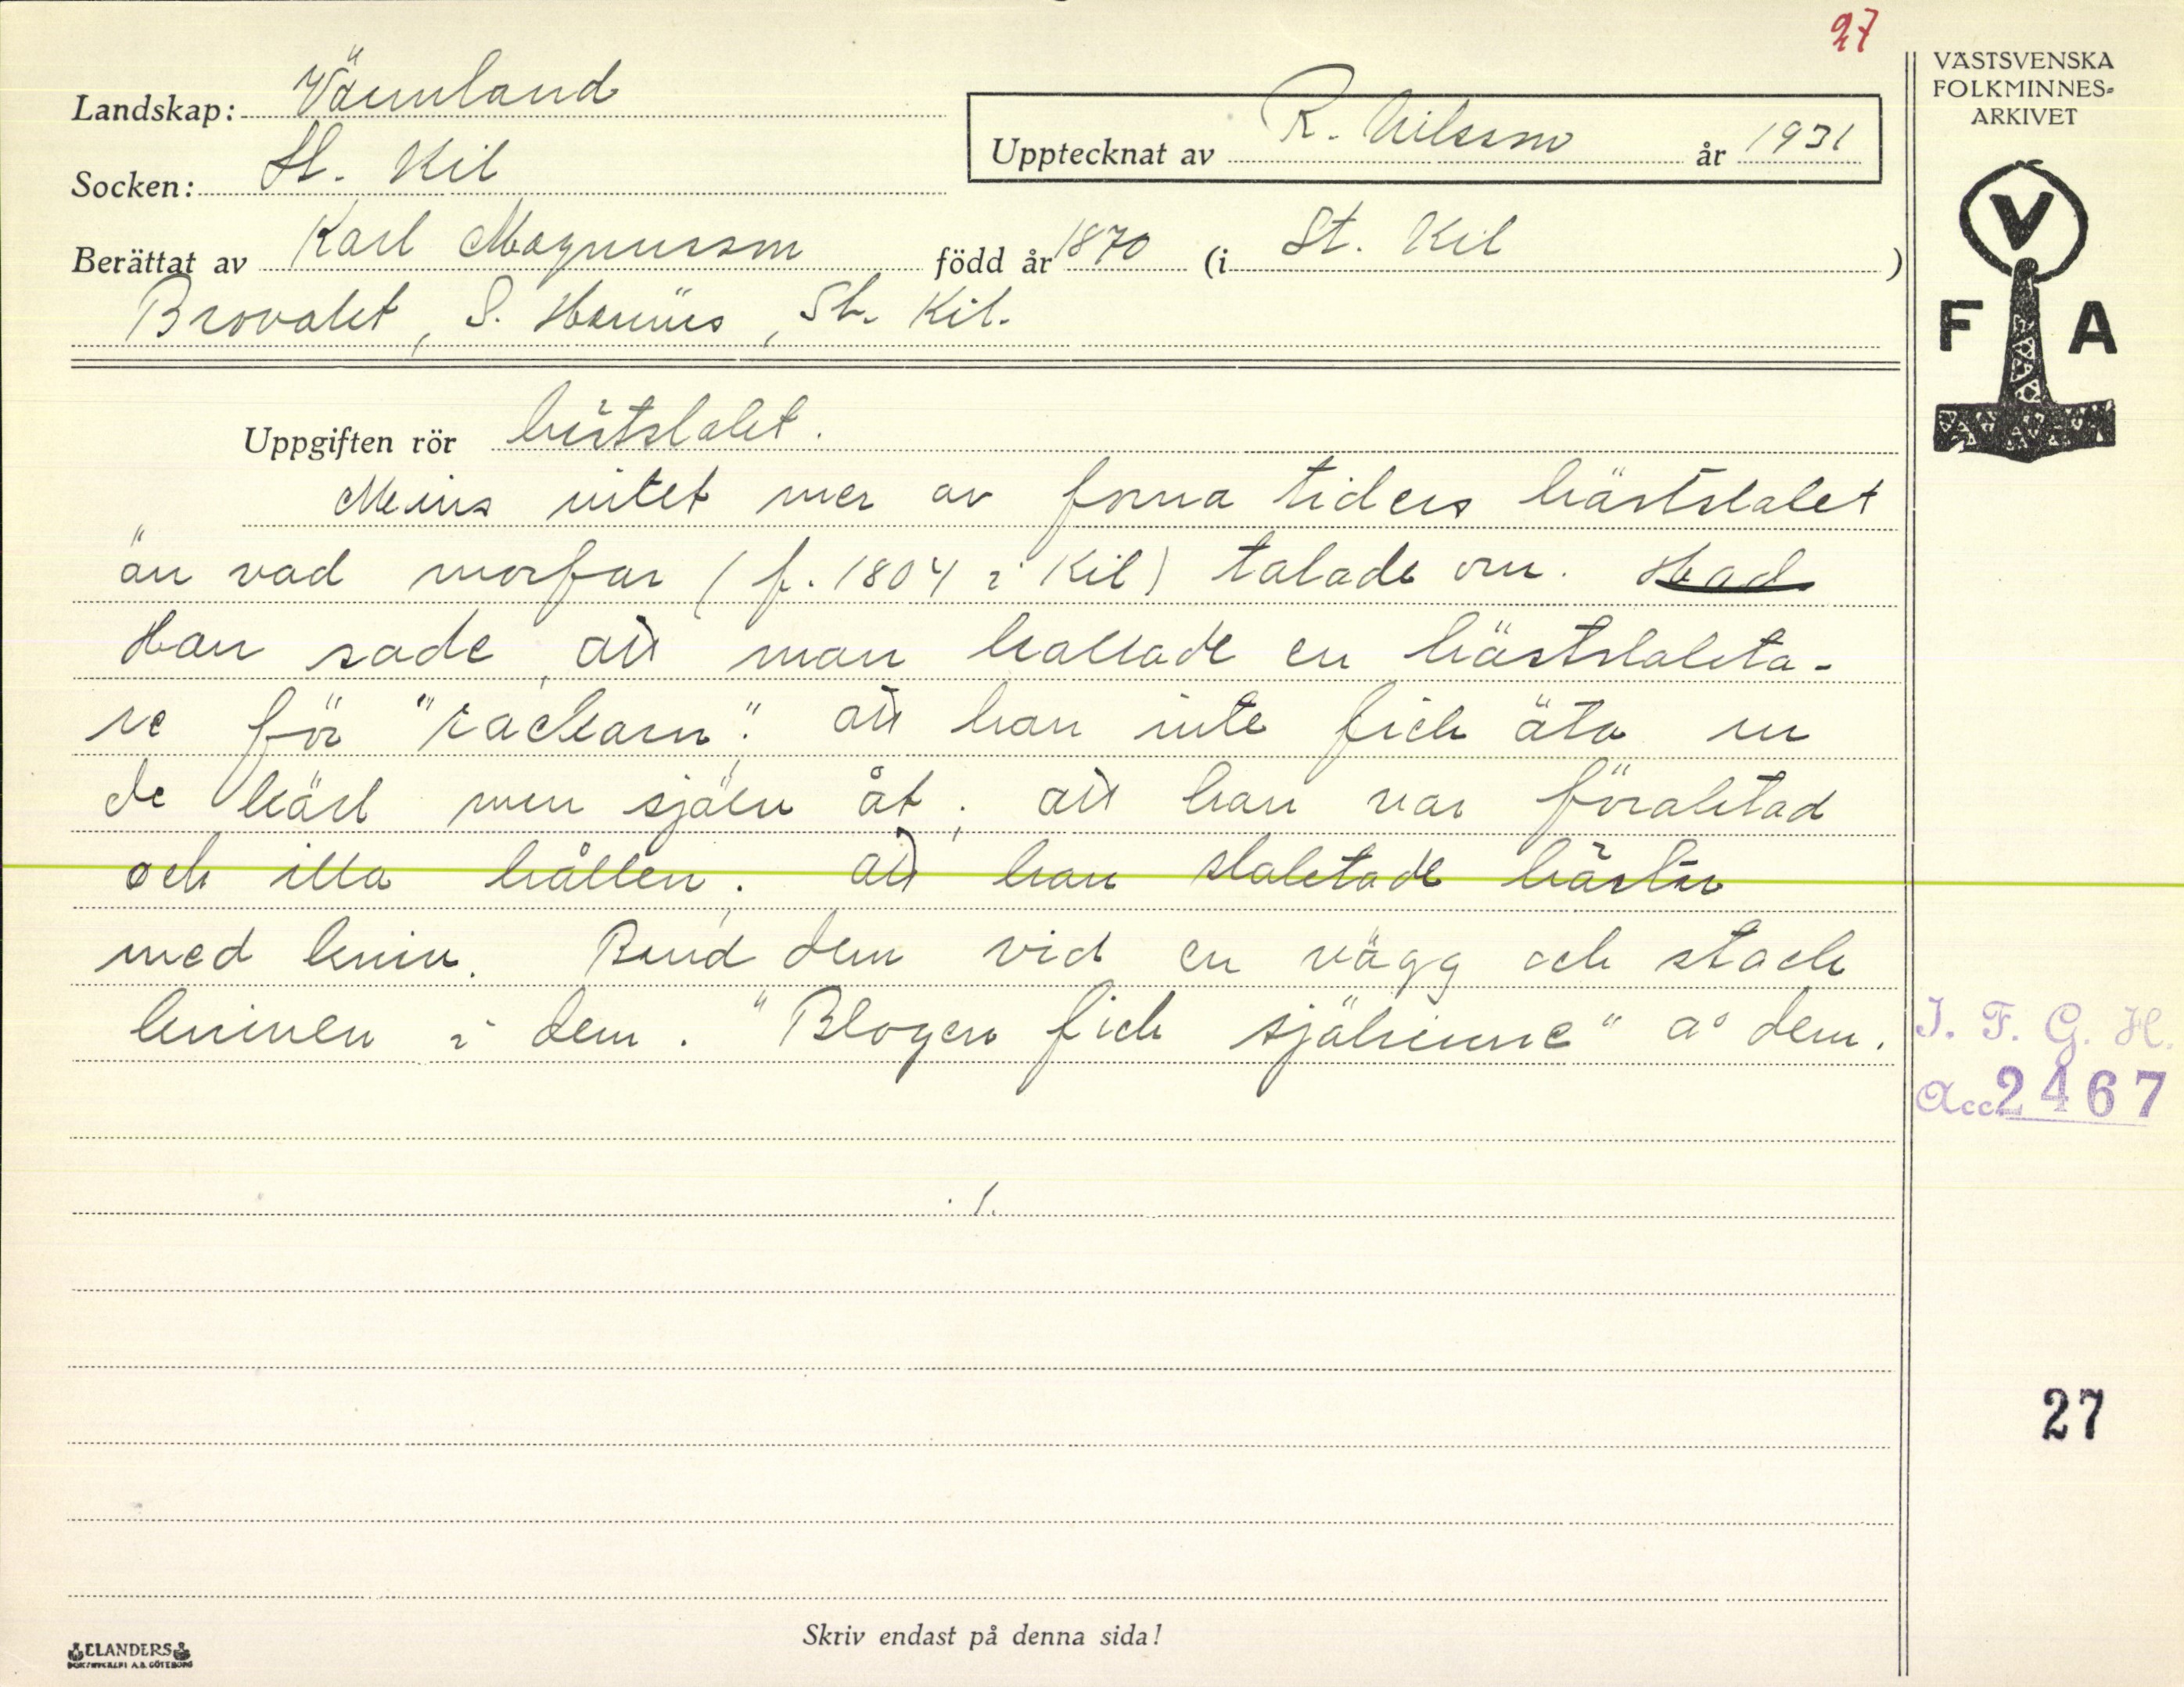 27
VÄSTSVENSKA
FOLKMINNES-
ARKIVET
Landskap: Värmland
Upptecknat av R. Nilsson år 1931
Socken: St. Kil
Berättat av Karl Magnusson född år 1870 (i St. Kil)
S. , St. Kil.
V
F A
Uppgiften rör hästslakt.
Minns intet mer av forna tiders hästslakt
än vad morfar (f. 1804 i Kil) talade om. Had
Han sade, att man kallade en hästslakta-
re för "rackarn"; att han inte fick äta ur
de kärl men själv åt; att han var föraktad
och illa hållen; att han slaktade hästar
med kniv. Band dem vid en vägg och stack
kniven i dem. "Blogen fick själrinne" a° dem.
./.
I. F. G. H.
Acc 2467
27
Skriv endast på denna sida!
ELANDERS
BOKTRYCKERI A.B. GÖTEBORG